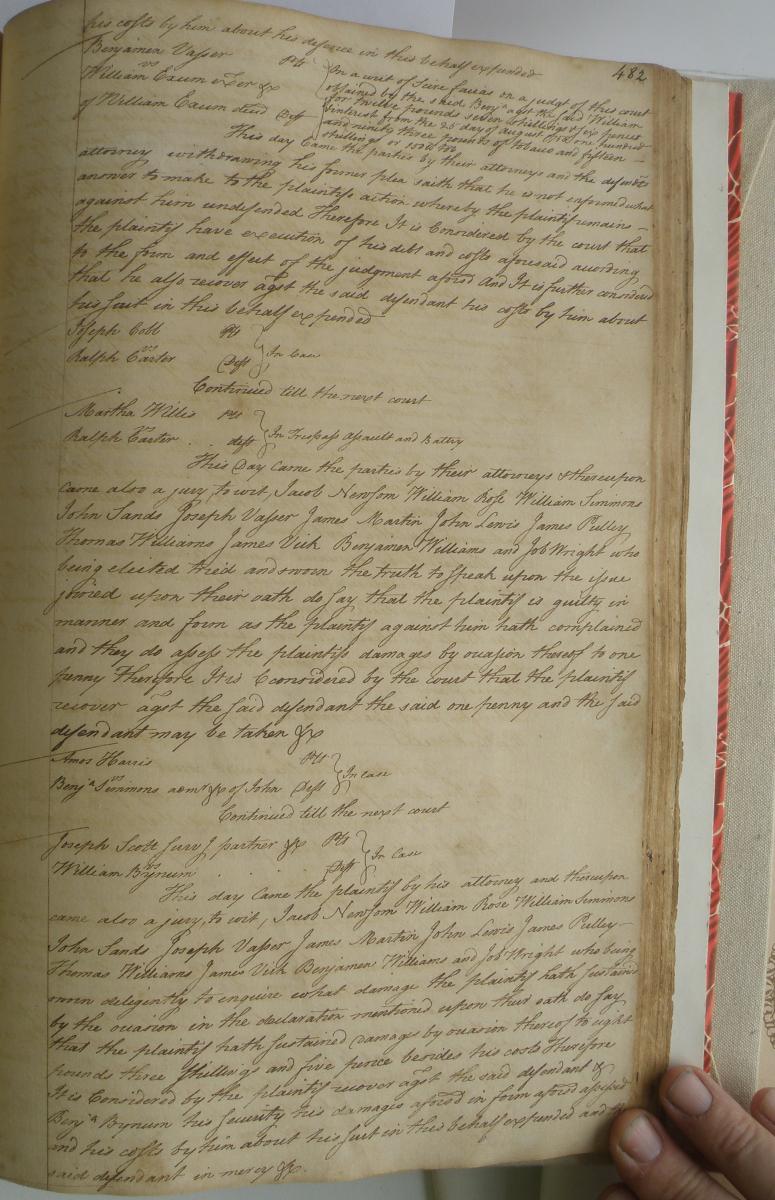 his costs by him about his defence in this behalf expended
482
Benjamen Vasser Plt
vs
William Exum exer &c
of William Exum decd Deft
On a writ of Scire facias on a judgt of this court
obtained by the said Benja agst the said William
for twelve pounds seven shillings & six pence
interest from the 25 day of August
and ninety three pounds of tobacco and fifteen
shillings or 150 lb
This day Came the parties by their attorneys and the defendts
attorney withdrawing his former plea saith that he is not informed what
answer to make to the plaintifs action whereby the plaintif remains
against him undefended Therefore It is Considered by the court that
the plaintif have execution of his debt and costs aforesaid according
to the form and effect of the judgment aforsd And It is further considered
that he also recover agst the said defendant his costs by him about
his suit in this behalf expended
Joseph Cobb Plt
vs
Ralph Carter Deft
In Case
Continued till the next court
Martha Willis Plt
vs
Ralph Carter deft
In Trespass Assault and Battry
This Day Came the parties by their attorneys & thereupon
came also a jury, to wit, Jacob Newsom William Rose William Simmons
John Sands Joseph Vasser James Martin John Lewis James Pulley
Thomas Williams James Vick Benjamen Williams and Job Wright who
being elected tried and sworn the truth to speak upon the issue
joined upon their oath do say that the plaintif is guilty in
manner and form as the plaintif against him hath complained
and they do assess the plaintifs damages by ocasion thereof to one
penny Therefore It is Cconsidered by the court that the plaintif
recover agst the said defendant the said one penny and the said
defendant may be taken &c
Amos Harris Plt
vs
Benja Simmons admr &c of John Deft
In case
Continued till the next court
Joseph Scott Surv g partner &c Plt
vs
William Bynum Deft
In Case
This day Came the plaintif by his attorney and thereupon
came also a jury, to wit, Jacob Newsom William Rose William Simmons
John Sands Joseph Vasser James Martin John Lewis James Pulley
Thomas Williams James Vick Benjamen Williams and Job Wright who being
sworn diligently to enquire what damage the plaintif hath sustaind
by the ocasion in the declaration mentioned upon their oath do say
that the plaintif hath sustained damages by ocasion thereof to eight
pounds three shillings and five pence besides his costs Therefore
It is Considered by the plaintif recover agst the said defendant &
Benja Bynum his security his damages aforsd in form aforsd assessed
and his costs by him about his suit in this behalf expended and the
said defendant in mercy &c.